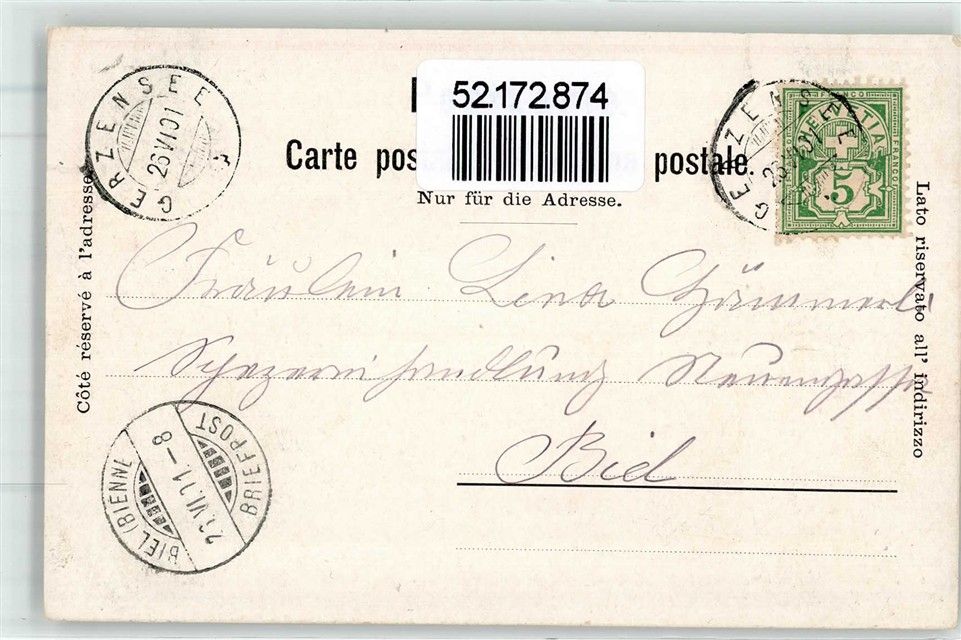 52.172.874
Carte pos postale.
Nur für die Adresse.
Côté réservé à l'adresse.
Lato riservato all' indirizzo
GERZENSEE
26 VI 01
GERZENSEE
FRANCO
FRANCO
HELVETIA
5
Fräulein Lina
Spezereihandlung Neuengasse
Biel
BIEL (BIENNE)
VI.01–8
BRIEFPOST